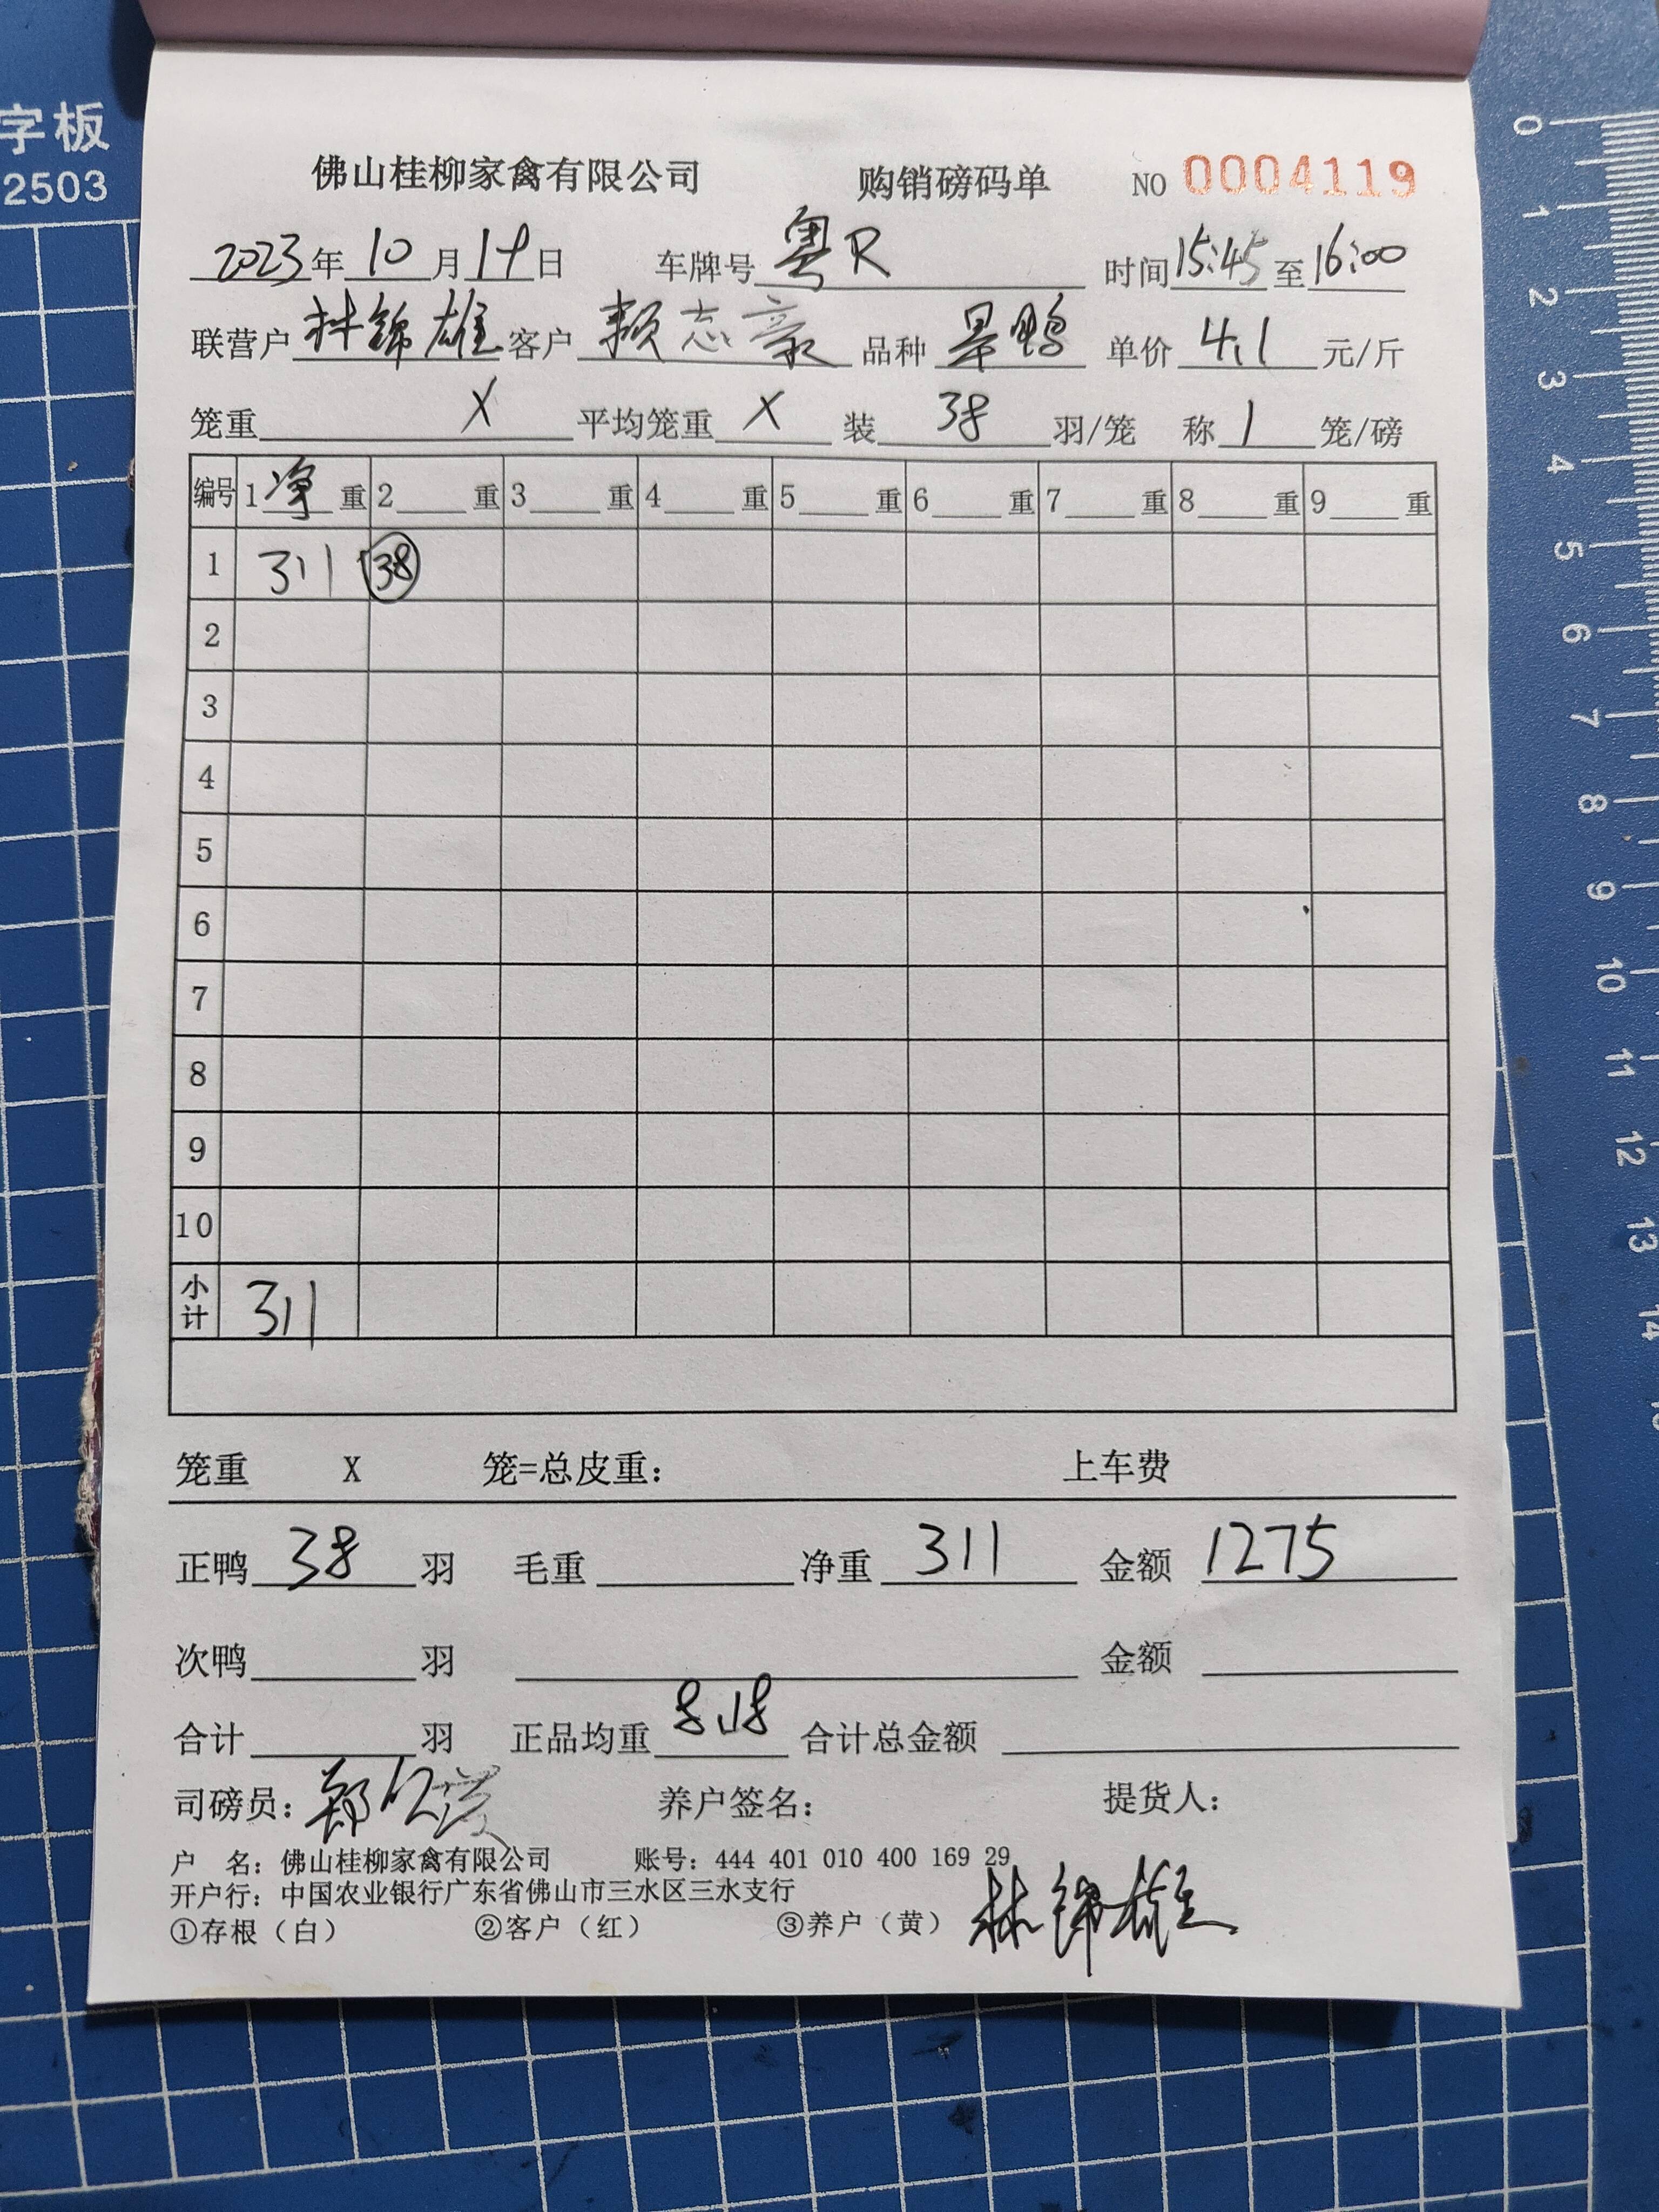 字板
2503
佛山桂柳家禽有限公司 购销磅码单 NO 0004119
2023年10月19日 车牌号 粤R 时间15:45至16:00
联营户 林锦雄 客户 赖志豪 品种 旱鸭 单价 4.1 元/斤
笼重 X 平均笼重 X 装 38 羽/笼 称 1 笼/磅
编号 1 净 重 2 重 3 重 4 重 5 重 6 重 7 重 8 重 9 重
1 311 38
2
3
4
5
6
7
8
9
10
小计 311
笼重 X 笼=总皮重: 上车费
正鸭 38 羽 毛重 净重 311 金额 1275
次鸭 羽 金额
合计 羽 正品均重 8.18 合计总金额
司磅员: 郑 养户签名: 提货人:
户 名: 佛山桂柳家禽有限公司 账号: 444 401 010 400 169 29
开户行: 中国农业银行广东省佛山市三水区三水支行
①存根（白） ②客户（红） ③养户（黄） 林锦雄
0
1
2
3
4
5
6
7
8
9
10
11
12
13
14